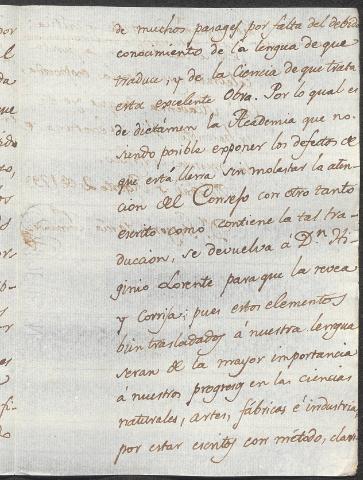 de muchos parages por falta del debido
conocimiento de la lengua de que
traduce, y de la Ciencia de que trata
esta excelente Obra. Por lo qual es
de dictámen la Academia que no
siendo posible exponer los defectos de
que está llena sin molestar la aten-
cion del Consejo con otro tanto
escrito como contiene la tal tra-
duccion, se devuelva á Dn. Hi-
ginio Lorente para que la revea
y Corrija; pues estos elementos
bien trasladados á nuestra lengua
seran de la mayor importancia
á nuestros progresos en las ciencias
naturales, artes, fábricas é industria,
por estar escritos con método, clari-